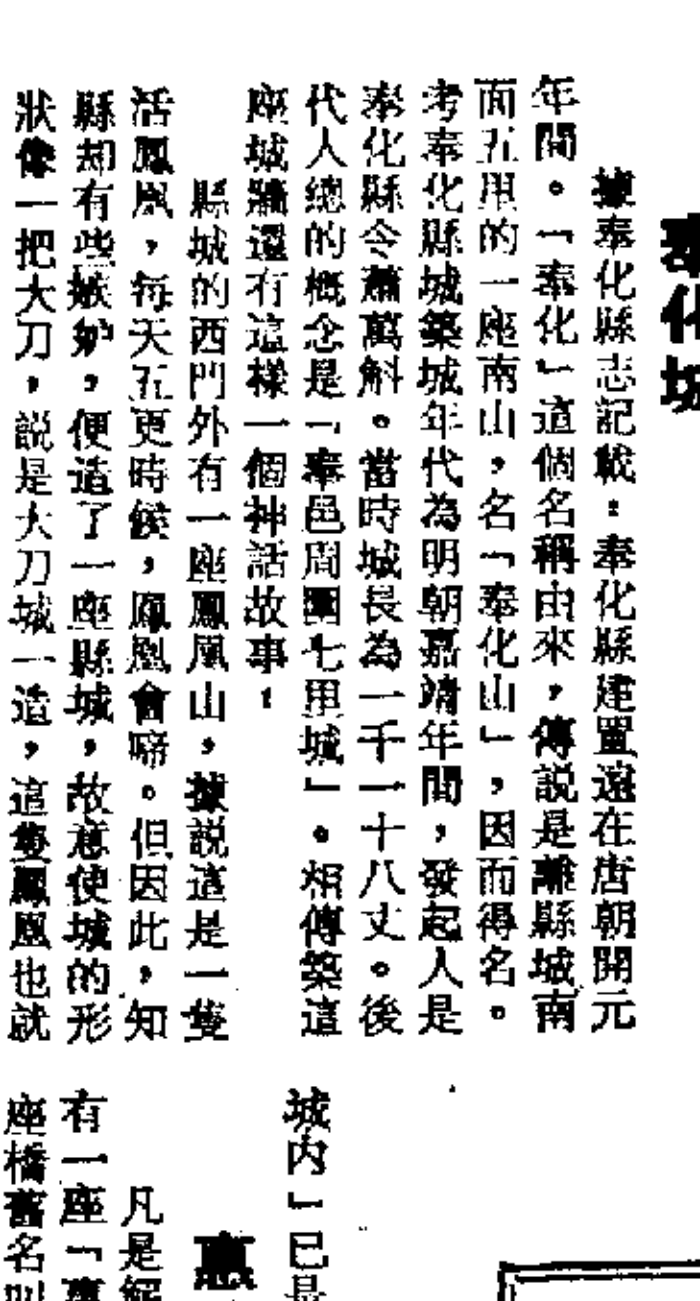 奉化城
據奉化縣志記載：奉化縣建置遠在唐朝開元
年間。「奉化」這個名稱由來，傳説是離縣城南
面五里的一座南山，名「奉化山」，因而得名。
考奉化縣城築城年代為明朝嘉靖年間，發起人是
奉化縣令蕭萬斛。當時城長為一千一十八丈。後
代人總的概念是「奉邑周圍七里城」。相傳築這
座城牆還有這樣一個神話故事：
縣城的西門外有一座鳳凰山，據説這是一隻
活鳳凰，每天五更時候，鳳凰會啼。但因此，知
縣却有些嫉妒，便造了一座縣城，故意使城的形
狀像一把大刀，説是大刀城一造，這隻鳳凰也就
城内」已是
惠
凡是
有一座「惠
座橋舊名叫